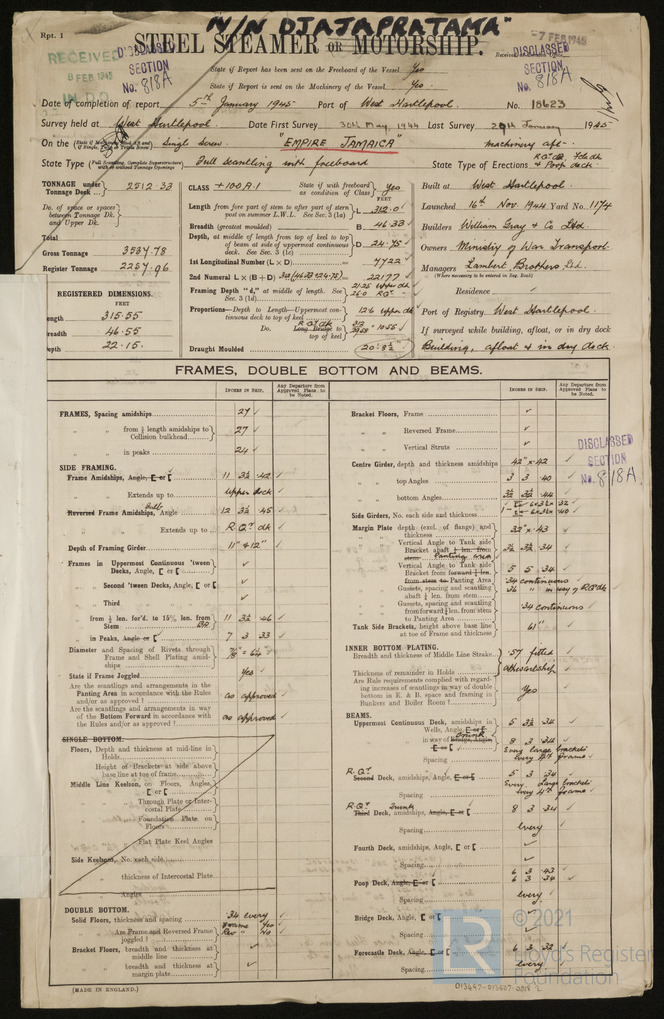 Rpt. 1
"N/N DJAJAPRATAMA"
STEEL STEAMER OR MOTORSHIP.
RECEIVED
8 FEB 1945
IN D.O.
DISCLASSED
SECTION
No. 818A
7 FEB 1945
DISCLASSED
SECTION
No. 818A
State if Report has been sent on the Freeboard of the Vessel Yes
State if Report is sent on the Machinery of the Vessel Yes.
Date of completion of report 5th January 1945 Port of West Hartlepool. No. 18623
Survey held at West Hartlepool. Date First Survey 30th May, 1944 Last Survey 29th January 1945
On the Single Screw. "EMPIRE JAMAICA" machinery aft.
State Type (Full Scantling, Complete Superstructure with or without Tonnage Openings) Full scantling with freeboard State Type of Erections R.Q.dk. Fcle dk & Poop deck
TONNAGE under Tonnage Deck 2512.33
Do. of space or spaces between Tonnage Dk. and Upper Dk.
Total
Gross Tonnage 3537.78
Register Tonnage 2257.96
REGISTERED DIMENSIONS.
FEET
Length 315.55
Breadth 46.55
Depth 22.15.
CLASS +100A.1 State if with freeboard as condition of Class Yes
FEET
Length from fore part of stem to after part of stern post on summer L.W.L. See Sec. 3 (1a) L 312.0
Breadth (greatest moulded) B. 46.33
Depth, at middle of length from top of keel to top of beam at side of uppermost continuous deck. See Sec. 3 (1c) D 24.75
1st Longitudinal Number (L × D) 7722
2nd Numeral L × (B + D) 312 (46.33+24.75) 22177
Framing Depth "d," at middle of length. See Sec. 3 (1d) 21.25 upper dk
26.0 RQ"
Proportions—Depth to Length—Uppermost continuous deck to top of keel 12.6 upper dk
Do. R.Q.dk Long Bridge to top of keel 10.55
Draught Moulded 20'-8½"
Built at West Hartlepool.
Launched 16th Nov 1944 Yard No. 1174
Builders William Gray & Co Ltd
Owners Ministry of War Transport
Managers Lambert Brothers Ltd.
(Where necessary to be entered in Reg. Book)
Residence
Port of Registry West Hartlepool.
If surveyed while building, afloat, or in dry dock
Building, afloat & in dry dock.
FRAMES, DOUBLE BOTTOM AND BEAMS.
INCHES IN SHIP.
Any Departure from Approved Plans to be Noted.
FRAMES, Spacing amidships 27
" " from ⅕ length amidships to Collision bulkhead 27
" " in peaks 24
SIDE FRAMING.
Frame Amidships, Angle, E or [ 11 3½ .42
" " Extends up to Upper deck
Reversed Frame Amidships, Bulb Angle 12 3½ .45
" " Extends up to R.Q. dk
Depth of Framing Girder 11" & 12"
Frames in Uppermost Continuous 'tween Decks, Angle, [ or [
" Second 'tween Decks, Angle, [ or [
" Third " " "
" from ⅕ len. for'd. to 15% len. from Stem 11 3½ .46
" in Peaks, Angle or [ 7 3 .33
Diameter and Spacing of Rivets through Frame and Shell Plating amidships
State if Frame Joggled Yes
Are the scantlings and arrangements in the Panting Area in accordance with the Rules and/or as approved? as approved
Are the scantlings and arrangements in way of the Bottom Forward in accordance with the Rules and/or as approved? as approved
SINGLE BOTTOM.
Floors, Depth and thickness at mid-line in Holds
Height of Brackets at side above base line at toe of frame
Middle Line Keelson, on Floors, Angles [ or [
" " Through Plate or Intercostal Plate
" " Foundation Plate on Floors
" " Flat Plate Keel Angles
Side Keelsons, No. each side
" " thickness of Intercostal Plate
" " Angles
DOUBLE BOTTOM.
Solid Floors, thickness and spacing .34 every frame
" " Are Frame and Reversed Frame joggled? Yes
Rev No
Bracket Floors, breadth and thickness at middle line
" " breadth and thickness at margin plate
INCHES IN SHIP.
Any Departure from Approved Plans to be Noted.
Bracket Floors, Frame
" " Reversed Frame
" " Vertical Struts
Centre Girder, depth and thickness amidships 42" × .42
" " top Angles 3 3 .40
" " bottom Angles 3½ 3½ .44
Side Girders, No. each side and thickness
Margin Plate depth (excl. of flange) and thickness 32" × .43
" " Vertical Angle to Tank side Bracket abaft ¼ len. from stem Panting area 3½ 3½ .34
" " Vertical Angle to Tank side Bracket from forward ¼ len. from stem to Panting Area 5 5 .34
" " Gussets, spacing and scantling abaft ¼ len. from stem .34 continuous
.36 " in way of RQ dk
" " Gussets, spacing and scantling from forward ¼ len. from stem to Panting Area .34 continuous
Tank Side Brackets, height above base line at toe of Frame and thickness 61"
INNER BOTTOM PLATING.
Breadth and thickness of Middle Line Strake .57 fitted
Thickness of remainder in Holds
Are Rule requirements complied with regarding increases of scantlings in way of double bottom in E. & B. space and framing in Bunkers and Boiler Room? Yes
BEAMS.
Uppermost Continuous Deck, amidships in Wells, Angle, [ or [ 5 3½ .34
" " in way of Bridge, Angle, [ or [ 8 3 .34
Every large brackets
Spacing every 4th frame
R.Q. Second Deck, amidships, Angle, [ or [ 5 3 .34
Every Large brackets
Spacing every 4th frame
R.Q. Trunk Third Deck, amidships, Angle, [ or [ 8 3 .34
Spacing every
Fourth Deck, amidships, Angle, [ or [
Spacing
Poop Deck, Angle, [ or [ 6 3 .43
6 3 .34
Spacing every
Bridge Deck, Angle, [ or [
Spacing
Forecastle Deck, Angle, [ or [ 6 3 .32
Spacing every
DISCLASSED
SECTION
No. 818A
[MADE IN ENGLAND.]
© 2021
Lloyd's Register
Foundation
LR
013497-013507-0018 2